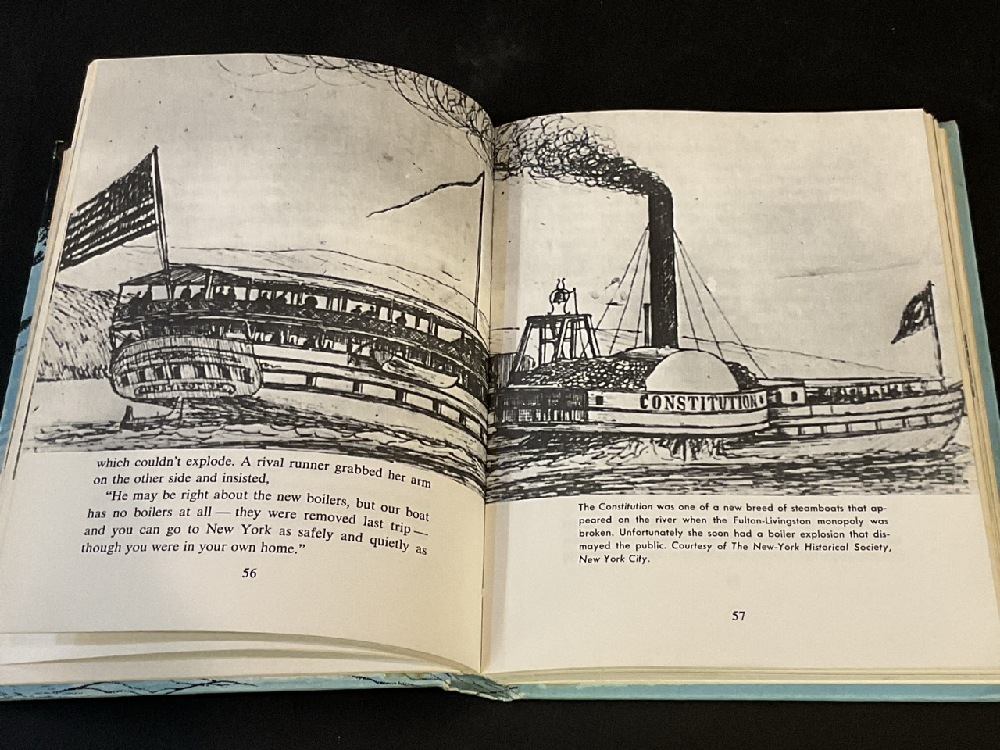 which couldn't explode. A rival runner grabbed her arm
on the other side and insisted,
"He may be right about the new boilers, but our boat
has no boilers at all — they were removed last trip —
and you can go to New York as safely and quietly as
though you were in your own home."
56
CONSTITUTION
The Constitution was one of a new breed of steamboats that ap-
peared on the river when the Fulton-Livingston monopoly was
broken. Unfortunately she soon had a boiler explosion that dis-
mayed the public. Courtesy of The New-York Historical Society,
New York City.
57